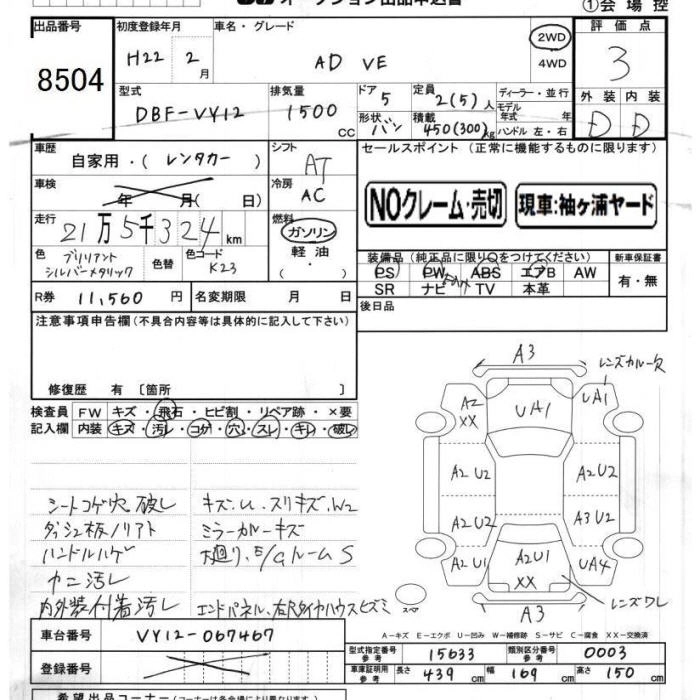 ①会場控
出品番号
8504
初度登録年月
H22 2月
車名・グレード
AD VE
2WD
4WD
評価点
3
型式
DBF-VY12
排気量
1500 CC
ドア 5
形状 バン
定員 2(5)人
積載 450(300)kg
ディーラー・並行
モデル年式 年
ハンドル 左・右
外装 内装
D D
車歴
自家用・(レンタカー)
シフト
AT
車検
年 月( 日)
冷房
AC
走行
21万5千324km
燃料
ガソリン
軽油
色
ブリリアント
シルバーメタリック
色替
色コード
K23
セールスポイント(正常に機能するものに限ります)
NOクレーム・売切
現車:袖ヶ浦ヤード
装備品(純正品に限り○をつけてください)
PS PW ABS エアB AW
SR ナビ TV 本革
新車保証書
有・無
R券 11,560円
名変期限 月 日
後日品
注意事項申告欄(不具合内容等は具体的に記入して下さい)
修復歴 有[箇所 ]
検査員
記入欄
FW キズ・飛石・ヒビ割・リペア跡・×要
内装 キズ・汚レ・コゲ・穴・スレ・キレ・破レ
シートコゲ穴破レ
ダッシュ板ノリアト
ハンドルハゲ
カニ汚レ
内外装付着汚レ
キズ.U.スリキズ.W2
ミラーカバーキズ
下廻り.E/GルームS
エンドパネル、右Rタイヤハウスヒズミ
A3
レンズカバー欠
A2
XX
UA1
UA1
A2 U2
A2 U2
A2 U2
A3 U2
A2 U1
A2 U1
XX
UA4
レンズワレ
スペア
A3
A-キズ E-エクボ U-凹み W-補修跡 S-サビ C-腐食 XX-交換済
車台番号
VY12-067467
登録番号
型式指定番号
参考
15633
類別区分番号
参考
0003
車庫証明用
参考
長さ 439cm 幅 169cm 高さ 150cm